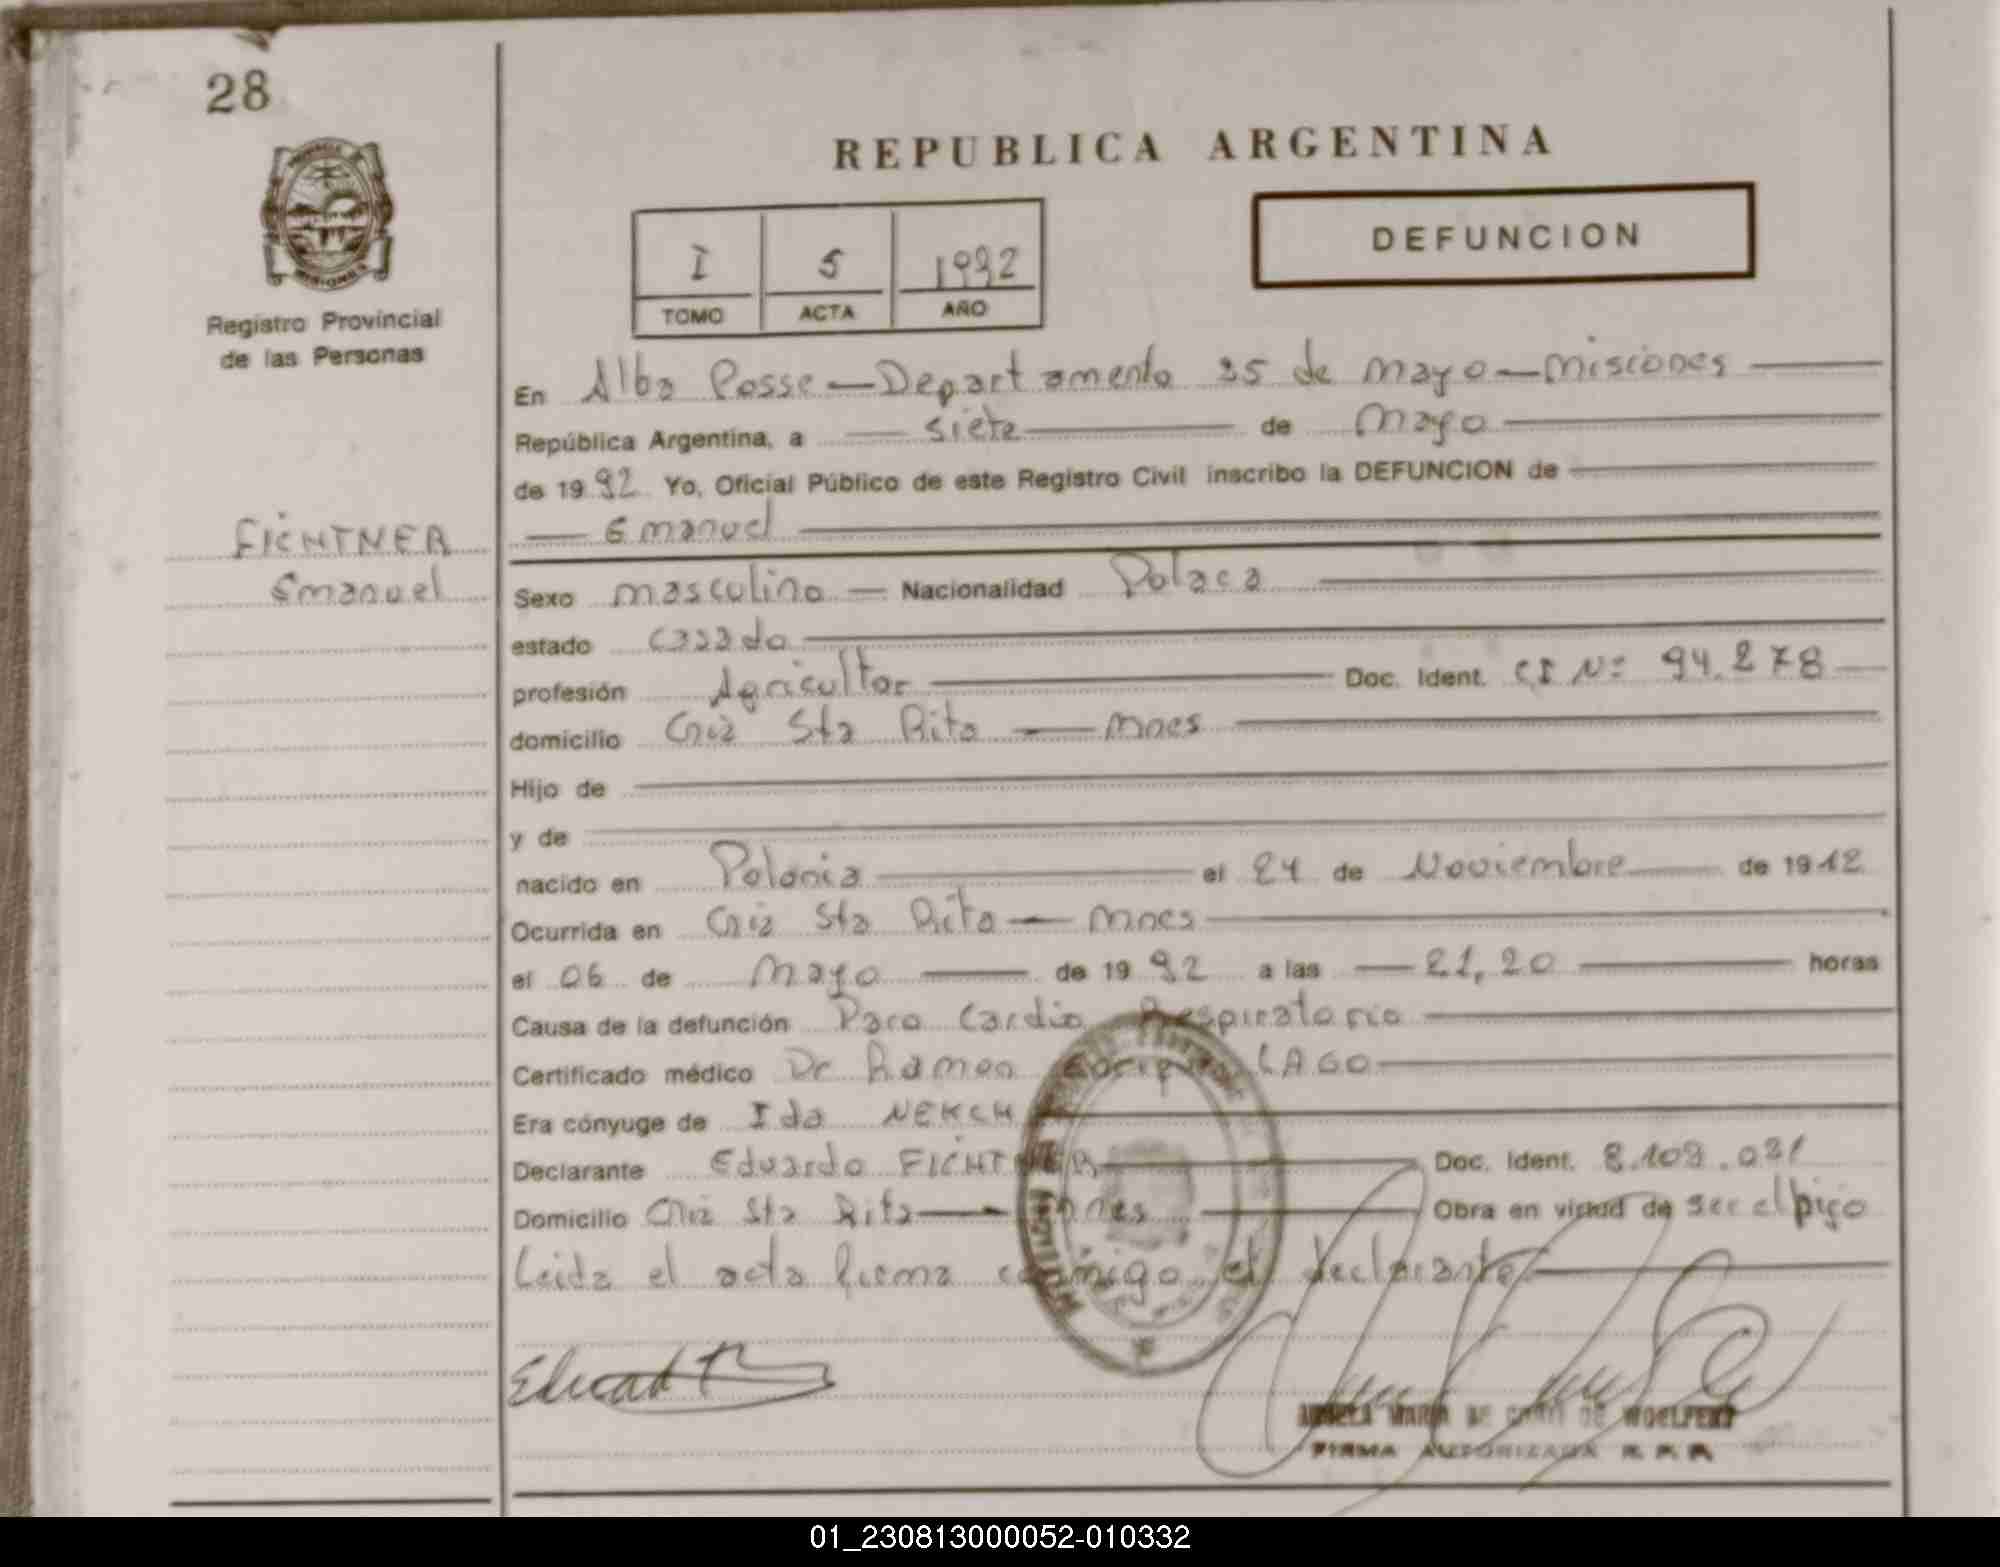 28
REPUBLICA ARGENTINA
DEFUNCION
I 5 1992
TOMO ACTA AÑO
Registro Provincial
de las Personas
En Alba Posse — Departamento 25 de Mayo — Misiones
República Argentina, a siete de Mayo
de 1992 Yo, Oficial Público de este Registro Civil inscribo la DEFUNCION de
FICHTNER
Emanuel
Emanuel
Sexo masculino — Nacionalidad Polaca
estado casado
profesión Agricultor Doc. Ident. CI Nº 94.278
domicilio Sta Rita — Mnes
Hijo de
y de
nacido en Polonia el 24 de Noviembre de 1912
Ocurrida en Sta Rita — Mnes
el 06 de Mayo de 1992 a las 21,20 horas
Causa de la defunción Paro Cardio Respiratorio
Certificado médico Dr Ramon LAGO
Era cónyuge de Ida NEKCH
Declarante Eduardo FICHTNER Doc. Ident. 8.109.031
Domicilio Sta Rita — Mnes Obra en virtud de ser el hijo
Leida el acta firma conmigo el declarante
MARIA DE DE WOELFERT
FIRMA AUTORIZADA R. P. P.
01_230813000052-010332